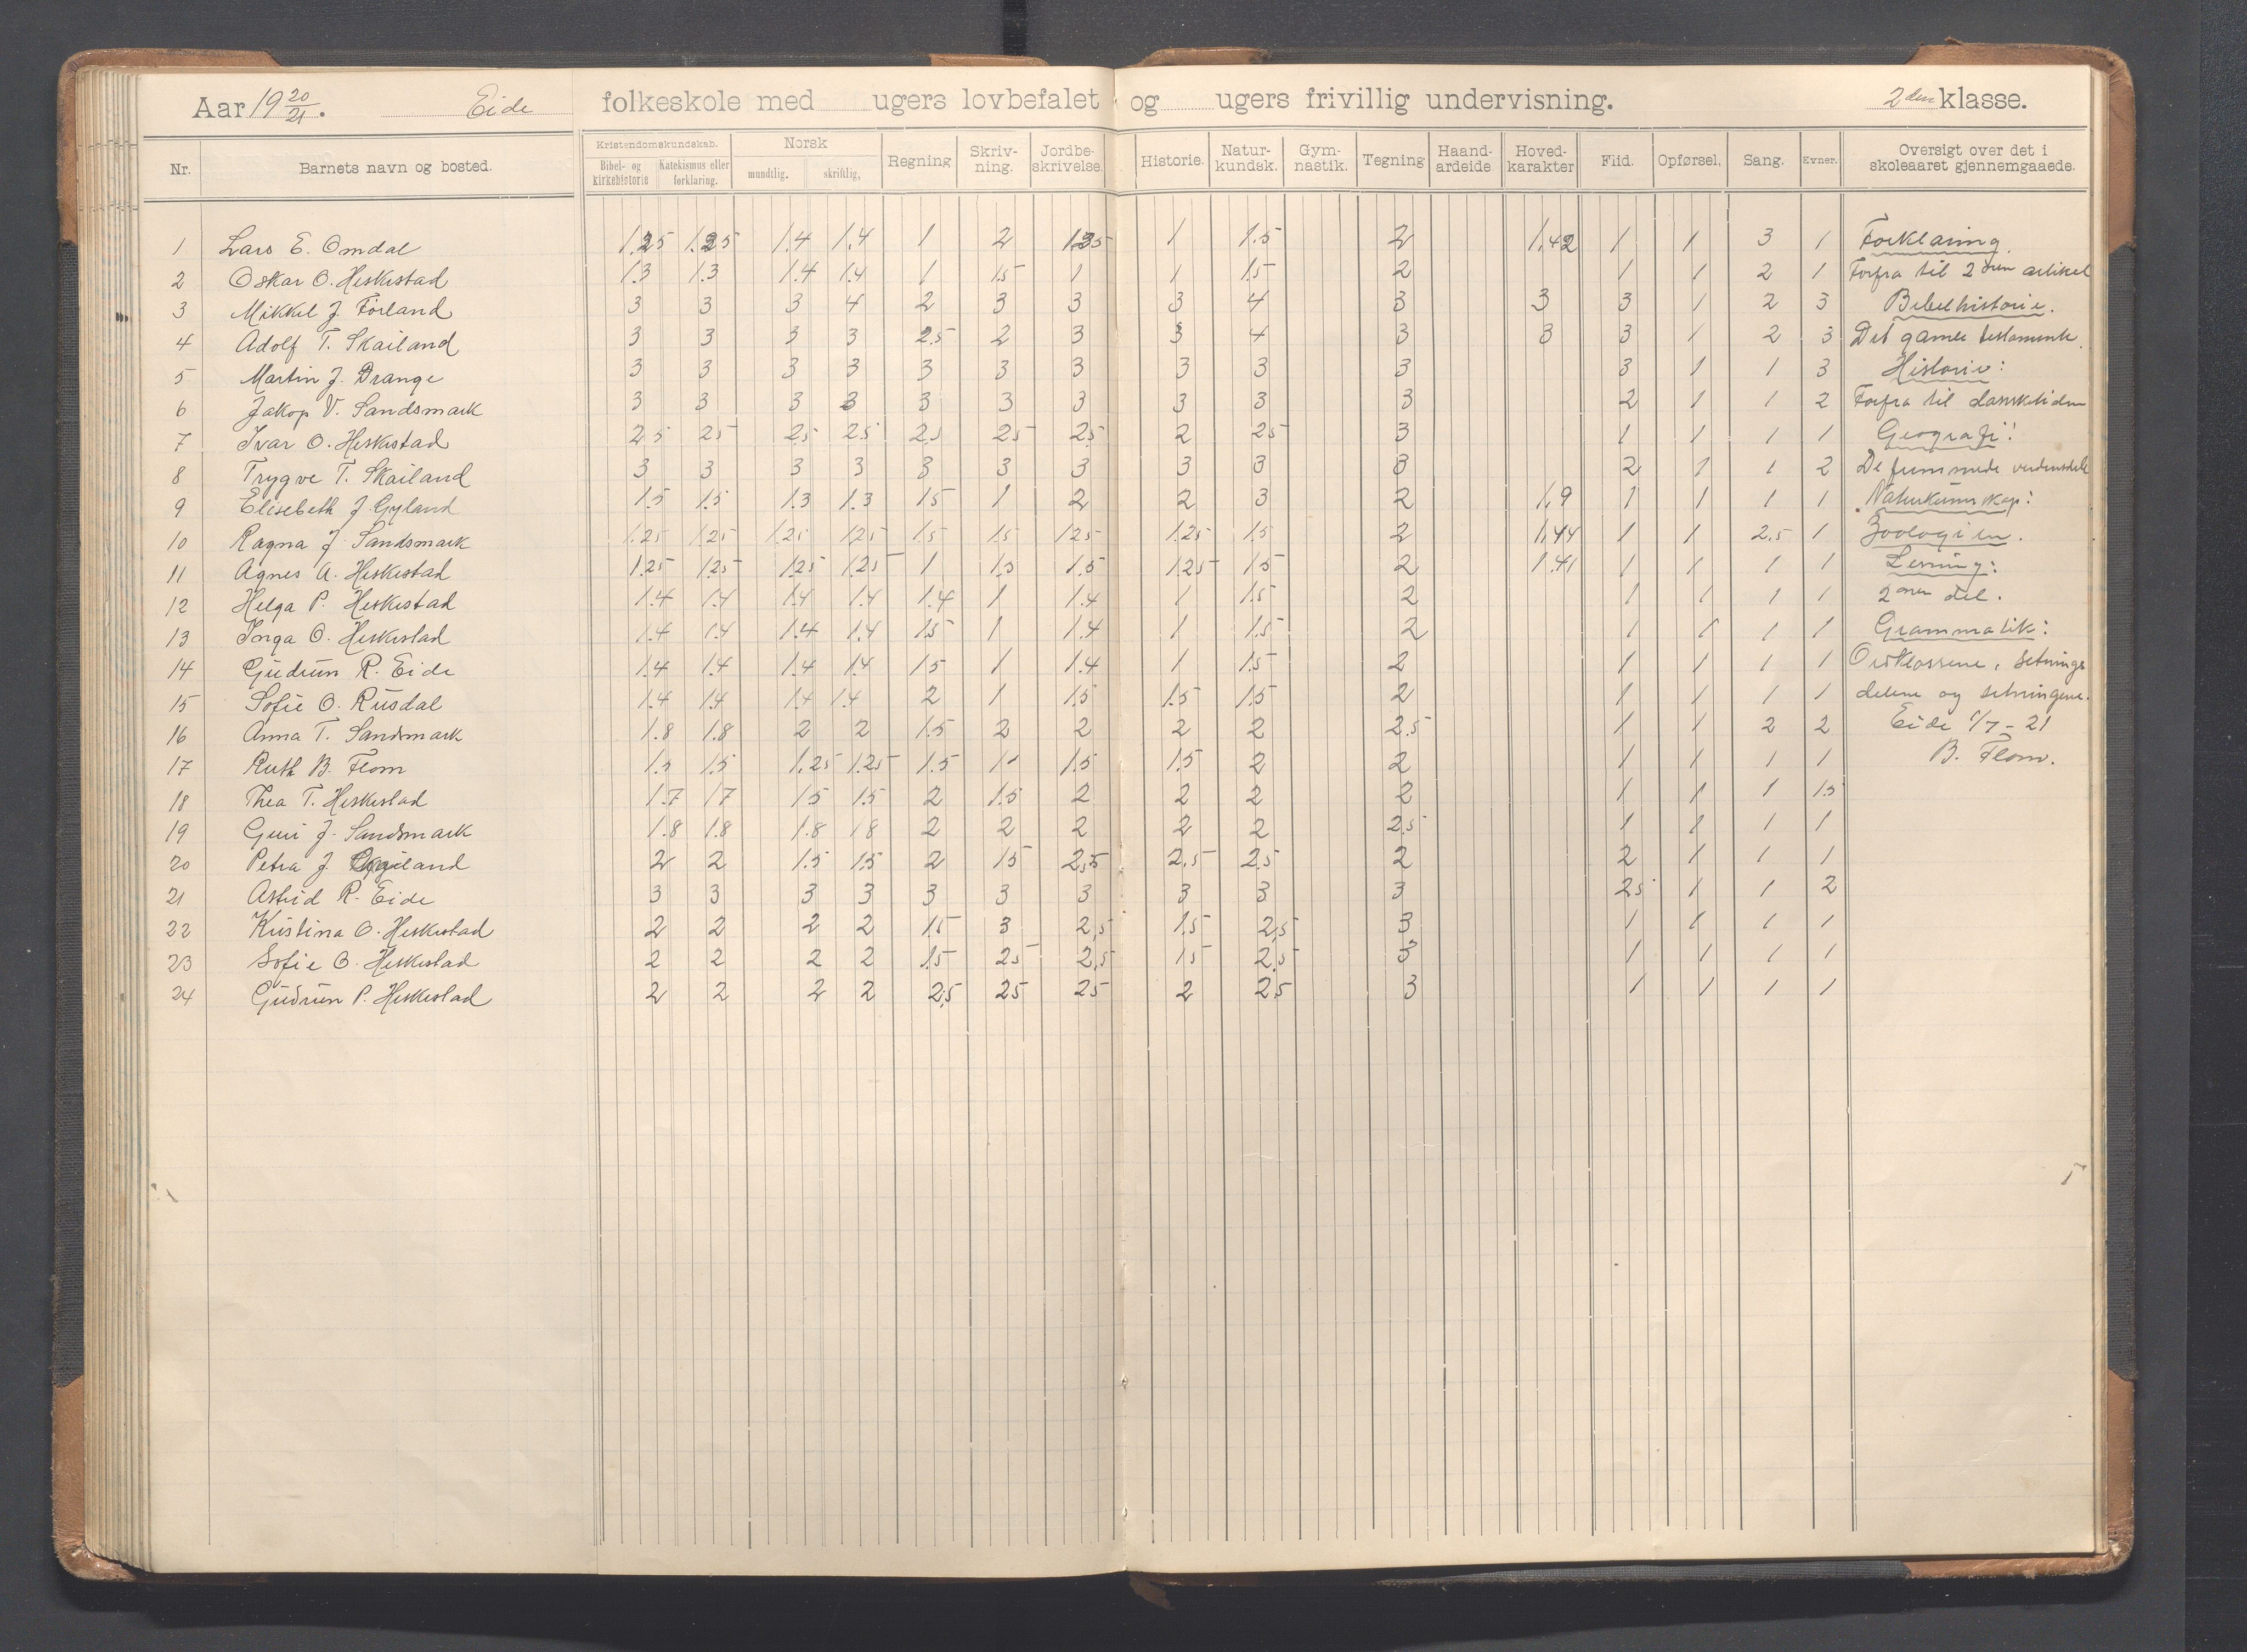 Aar 19 20/21. Eide folkeskole med ugers lovbefalet og ugers frivillig undervisning. 2den klasse.
Nr. Barnets navn og bosted. Kristendomskundskab. Bibel- og kirkehistorie Katekismus eller forklaring. Norsk mundtlig. skriftlig, Regning Skriv-ning. Jordbe-skrivelse. Historie. Natur-kundsk. Gym-nastik. Tegning Haand-arbeide Hoved-karakter Flid. Opførsel. Sang. Evner. Oversigt over det i skoleaaret gjennemgaaede.
1 Lars E. Omdal 1.25 1.25 1.4 1.4 1 2 1.25 1 1.5 2 1,42 1 1 3 1 Forklaring.
2 Oskar O. Heskestad 1.3 1.3 1.4 1.4 1 1.5 1 1 1.5 2 1 1 2 1 Forfra til 2den artikel
3 Mikkel J. Förland 3 3 3 4 2 3 3 3 4 3 3 3 1 2 3 Bibelhistorie.
4 Adolf T. Skailand 3 3 3 3 2.5 2 3 3 4 3 3 3 1 2 3 Det gamle testamente.
5 Martin J. Drange 3 3 3 3 3 3 3 3 3 3 3 1 1 3 Historie:
6 Jakop V. Sandsmark 3 3 3 3 3 3 3 3 3 3 2 1 1 2 Forfra til dansketiden
7 Ivar O. Heskestad 2.5 2.5 2.5 2.5 2.5 2.5 2.5 2 2.5 3 1 1 1 1 Geografi:
8 Trygve T. Skailand 3 3 3 3 3 3 3 3 3 3 2 1 1 2 De fremmede verdensdele
9 Elisebeth J. Gyland 1.5 1.5 1.3 1.3 1.5 1 2 2 3 2 1,9 1 1 1 1 Naturkunnskap:
10 Ragna J. Sandsmark 1.25 1.25 1.25 1.25 1.5 1.5 1.25 1.25 1.5 2 1,44 1 1 2.5 1 Zoologien.
11 Agnes A. Heskestad 1.25 1.25 1.25 1.25 1 1.5 1.5 1.25 1.5 2 1.41 1 1 1 1 Lesning:
12 Helga P. Heskestad 1.4 1.4 1.4 1.4 1.4 1 1.4 1 1.5 2 1 1 1 1 2den del.
13 Inga O. Heskestad 1.4 1.4 1.4 1.4 1.5 1 1.4 1 1.5 2 1 1 1 1 Grammatik:
14 Gudrun R. Eide 1.4 1.4 1.4 1.4 1.5 1 1.4 1 1.5 2 1 1 1 1 Ordklassene, setnings
15 Sofie O. Rusdal 1.4 1.4 1.4 1.4 2 1 1.5 1.5 1.5 2 1 1 1 1 delene og setningene.
16 Anna T. Sandsmark 1.8 1.8 2 2 1.5 2 2 2 2 2.5 1 1 2 2 Eide 1/7 - 21
17 Ruth B. Flom 1.5 1.5 1.25 1.25 1.5 1 1.5 1.5 2 2 1 1 1 1 B. Flom.
18 Thea T. Heskestad 1.7 1.7 1.5 1.5 2 1.5 2 2 2 2 1 1 1 1.5
19 Guri J. Sandsmark 1.8 1.8 1.8 1.8 2 2 2 2 2 2.5 1 1 1 1
20 Petra J. 2 2 1.5 1.5 2 1.5 2,5 2.5 2.5 2 2 1 1 1
21 Astrid R. Eide 3 3 3 3 3 3 3 3 3 3 2.5 1 1 2
22 Kristina O. Heskestad 2 2 2 2 1.5 3 2,5 1.5 2,5 3 1 1 1 1
23 Sofie O. Heskestad 2 2 2 2 1.5 2.5 2,5 1.5 2,5 3 1 1 1 1
24 Gudrun P. Heskestad 2 2 2 2 2,5 2.5 2.5 2 2.5 3 1 1 1 1